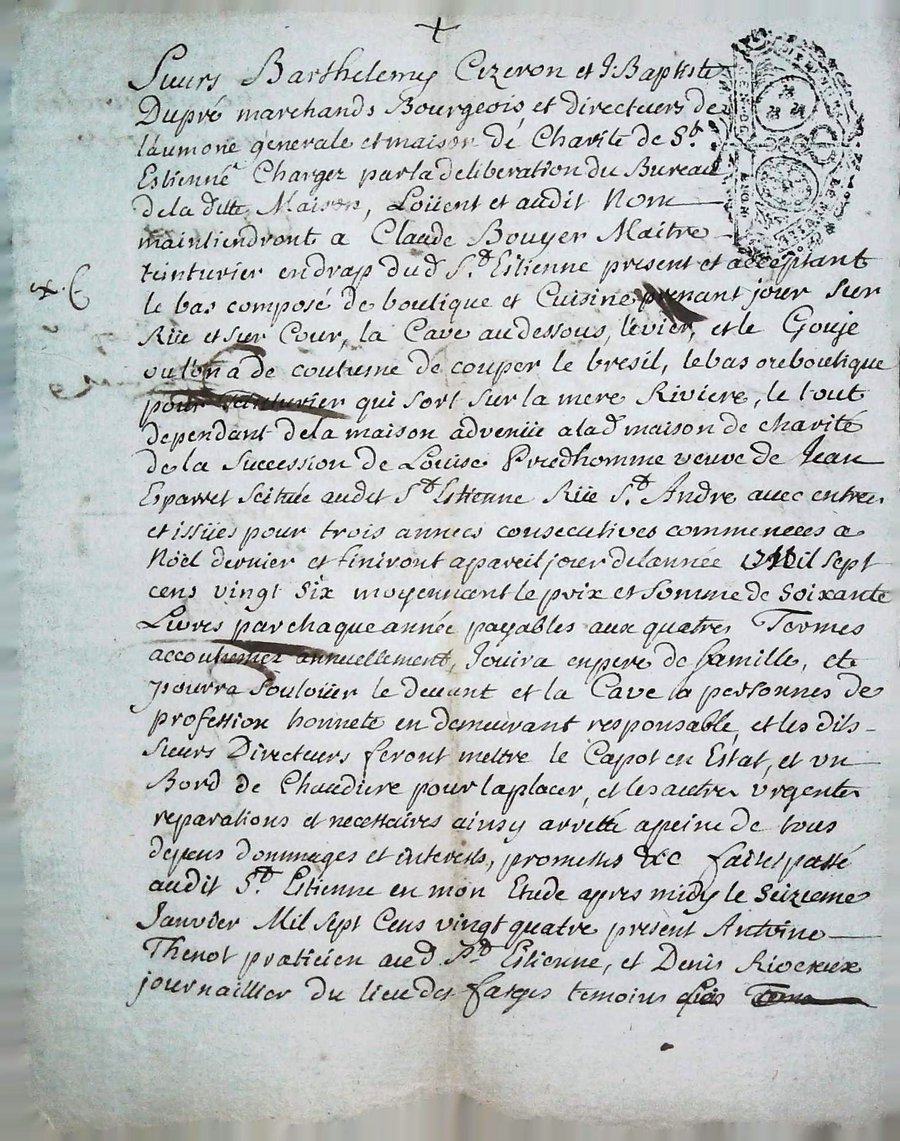 Sieurs Barthelemy Cizeron et J Baptiste
Dupré marchands Bourgeois, et directeurs de
laumone generale et maison de Charité de St.
Estienne Chargez par la deliberation du Bureau
de la ditte Maison, Loüent et audit Nom
maintiendront a Claude Bouyer Maitre
teinturier en drap dud St. Estienne present et acceptant
le bas composé de boutique et Cuisine prenant jour sur
Rüe et sur Cour, la Cave au dessous, l'evier, et le Gouje
ou l'on a de coutume de couper le bresil, le bas ou boutique
pour teinturier qui sort sur la mere Riviere, le tout
dependant de la maison advenüe a lad maison de charité
de la Succession de Louise Prudhomme veuve de Jean
Eparvet Scituée audit St Estienne Rüe St. André avec entrées
et issües pour trois années consecutives commencées a
Noël dernier et finiront a pareil jour de lannée Mil sept
cens vingt six moyennant le prix et somme de soixante
Livres par chaque année payables aux quatres Termes
accoutumez annuellement, Jouira en pere de famille, et
pourra soulouer le devant et la Cave a personnes de
profession honnete en demeurant responsable, et les dits
sieurs Directeurs feront mettre le Capot en Estat, et un
Bord de Chaudiere pour la placer, et les autres urgentes
reparations et necessaires ainsy arreté a peine de tous
depens dommages et interests, promettes &c fait et passé
audit St Estienne en mon Etude apres midy le Seizieme
Janvier Mil sept Cens vingt quatre present Antoine
Thenot praticien aud. St Estienne, et Denis
journallier du lieu des farges temoins
+
x. 6